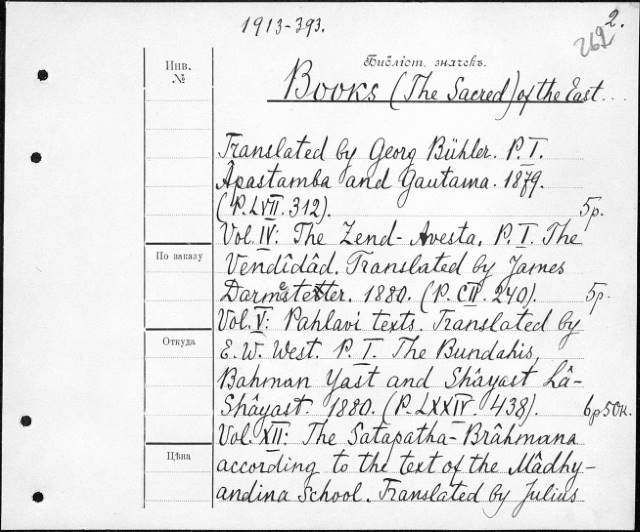 1913-393.
2.
262
Инв.
№
Библіот. значекъ.
Books (The Sacred) of the East...
Translated by Georg Bühler. P. I.
Âpastamba and Gautama. 1879.
(P. LVII. 312). 5р.
Vol. IV: The Zend-Avesta. P. I. The
По заказу
Vendîdâd. Translated by James
Darmesteter. 1880. (P. CII. 240). 5р.
Vol. V: Pahlavi texts. Translated by
Откуда
E. W. West. P. I. The Bundahis,
Bahman Yast and Shâyast Lâ-
Shâyast. 1880. (P. LXXIV. 438). 6р 50к.
Vol. XII: The Satapatha-Brâhmana
Цѣна
according to the text of the Mâdhy-
andina School. Translated by Julius